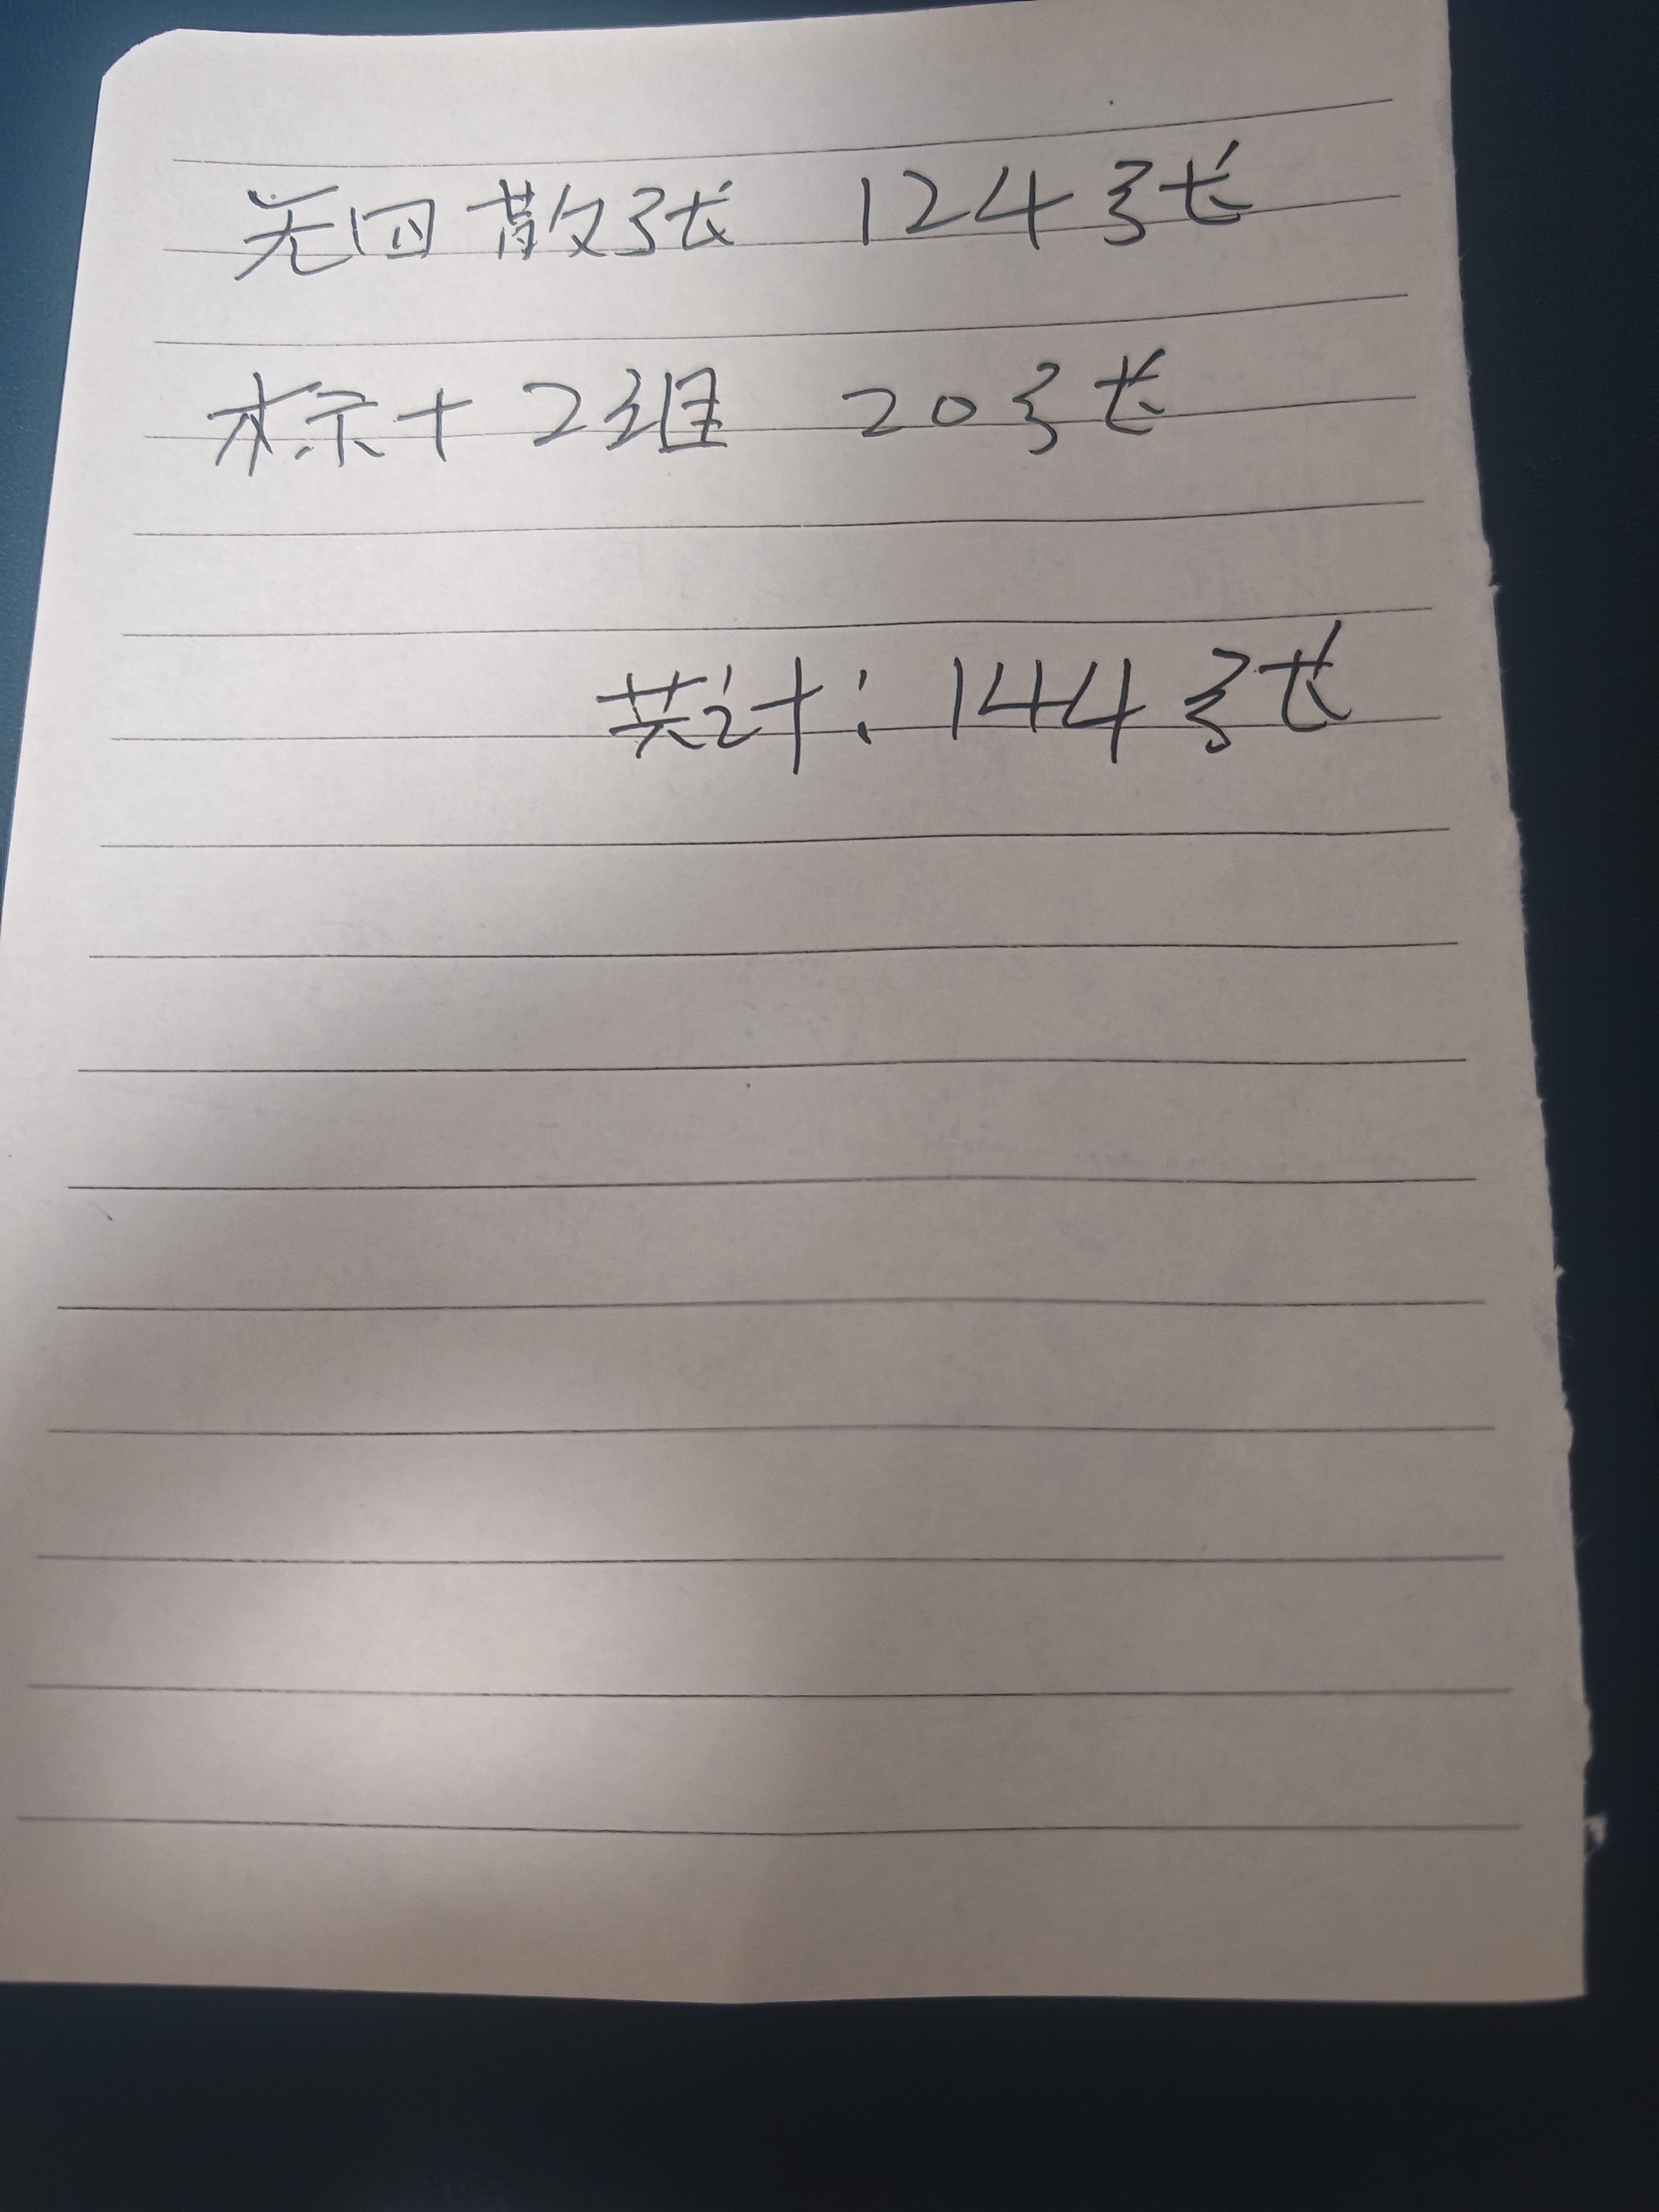 无四散张 124张
标十 2组 20张
共计：144张